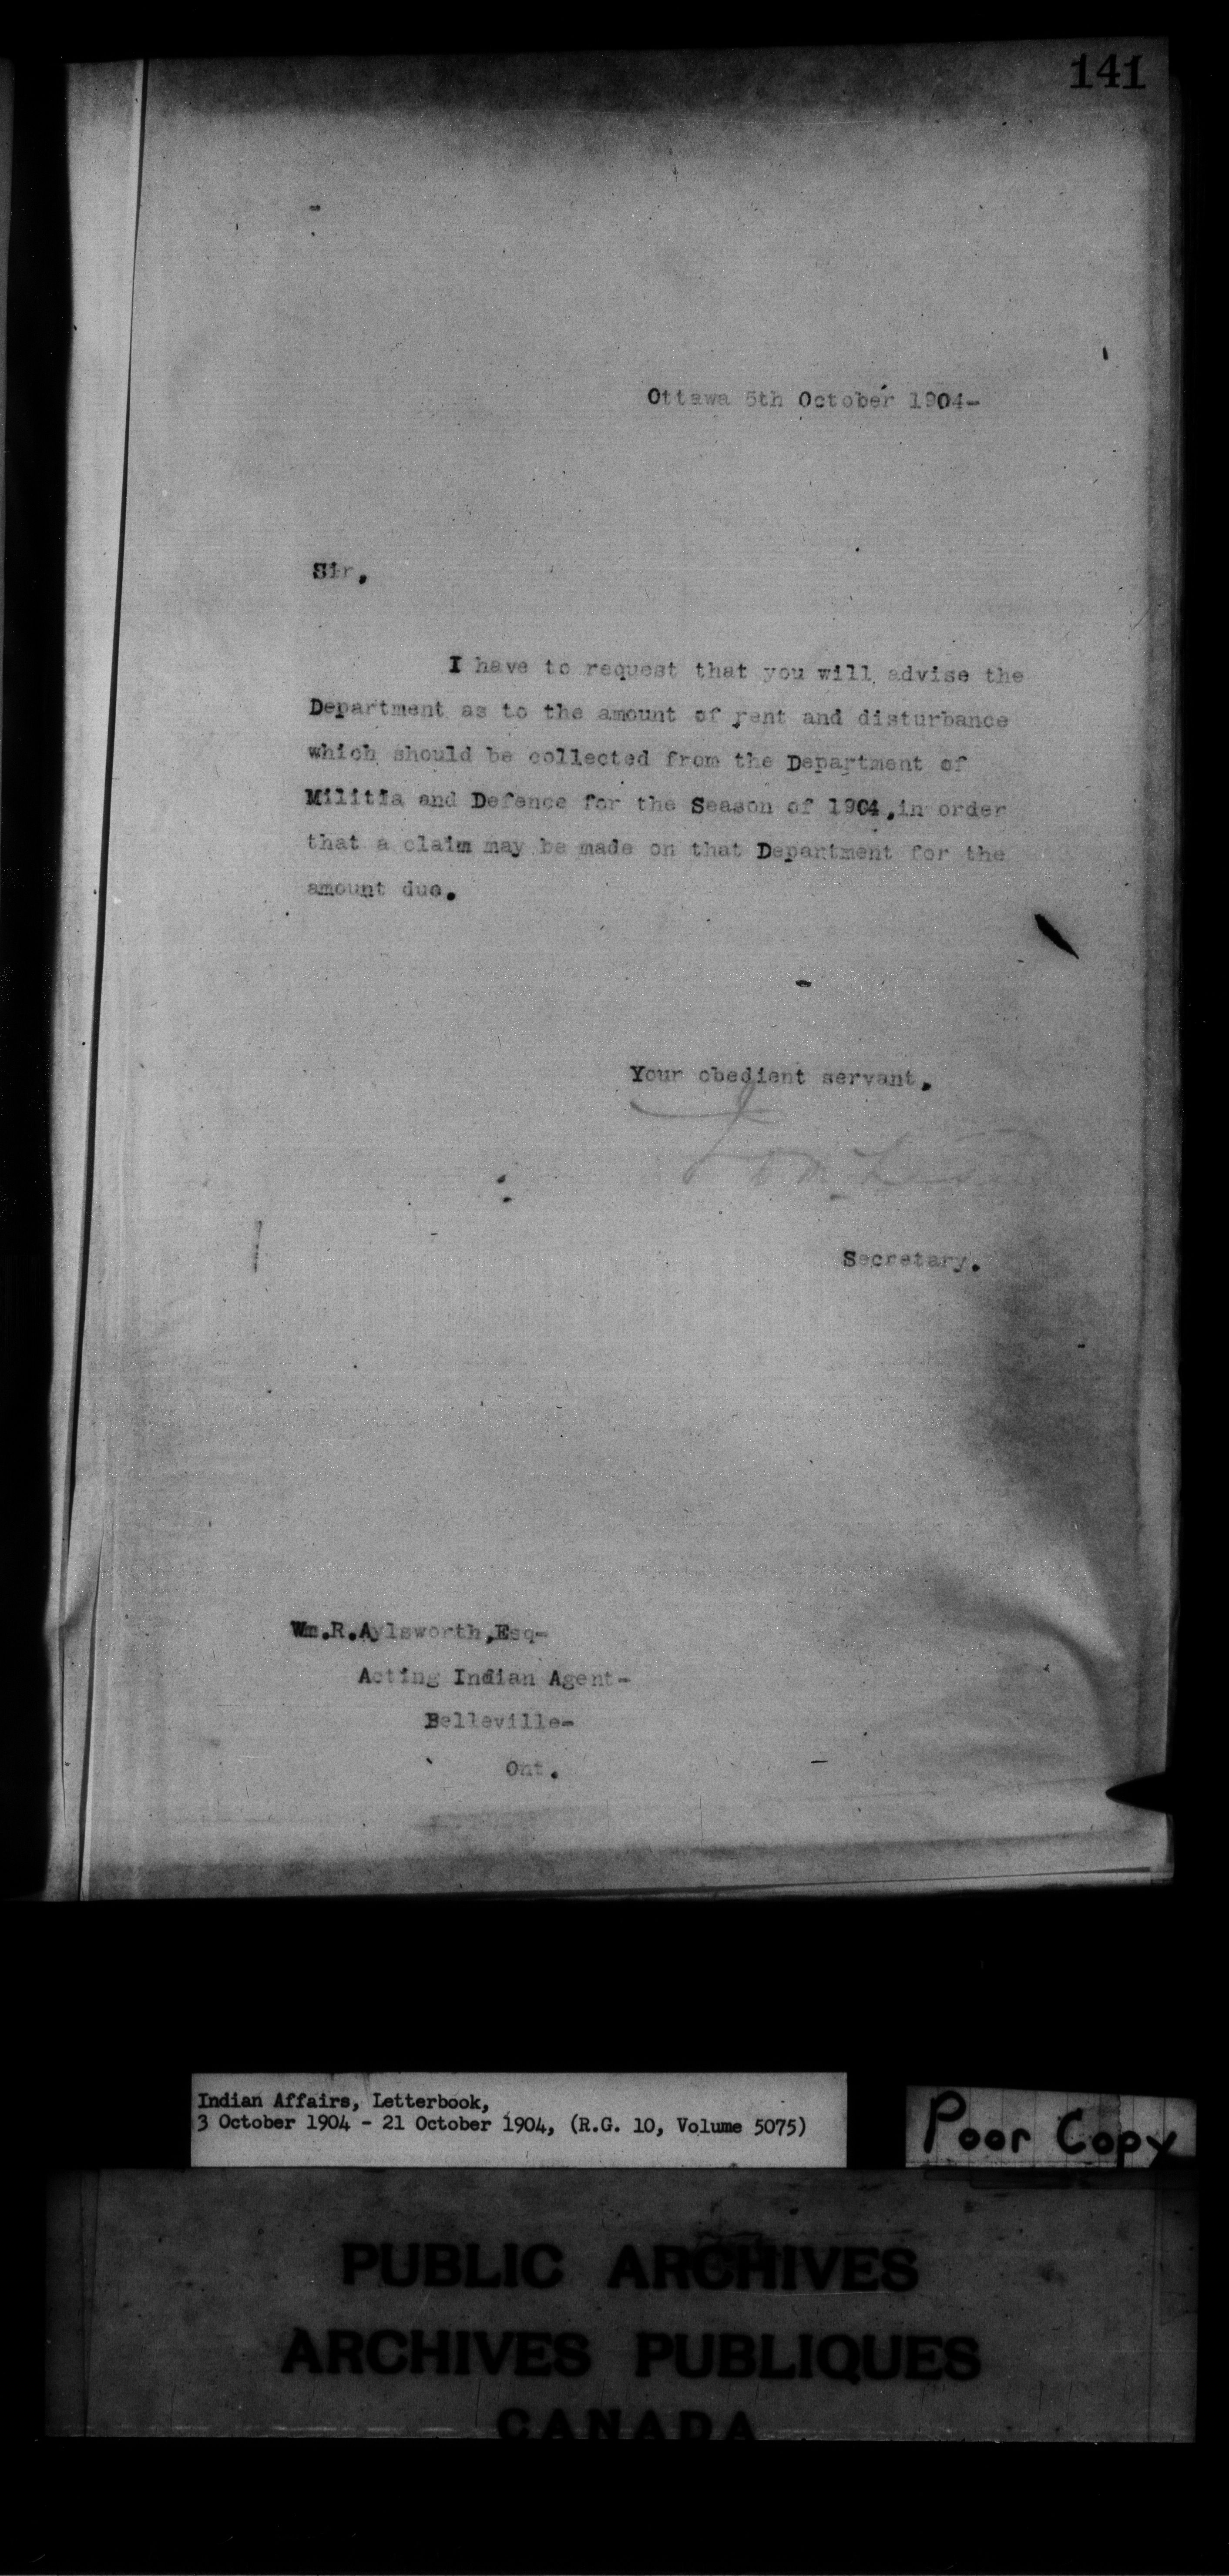 141
Ottawa 5th October 1904-
Sir.
I have to request that you will advise the
Department as to the amount of rent and disturbance
which should be collected from the Department of
Militia and Defence for the Season of 1904,in order
that a claim may be made on that Department for the
amount due.
Your obedient servant.
Secretary.
Wm.R.Aylsworth,Esq-
Acting Indian Agent-
Belleville-
Ont.
Indian Affairs, Letterbook,
3 October 1904 - 21 October 1904, (R.G. 10, Volume 5075)
Poor Copy
PUBLIC ARCHIVES
ARCHIVES PUBLIQUES
CANADA